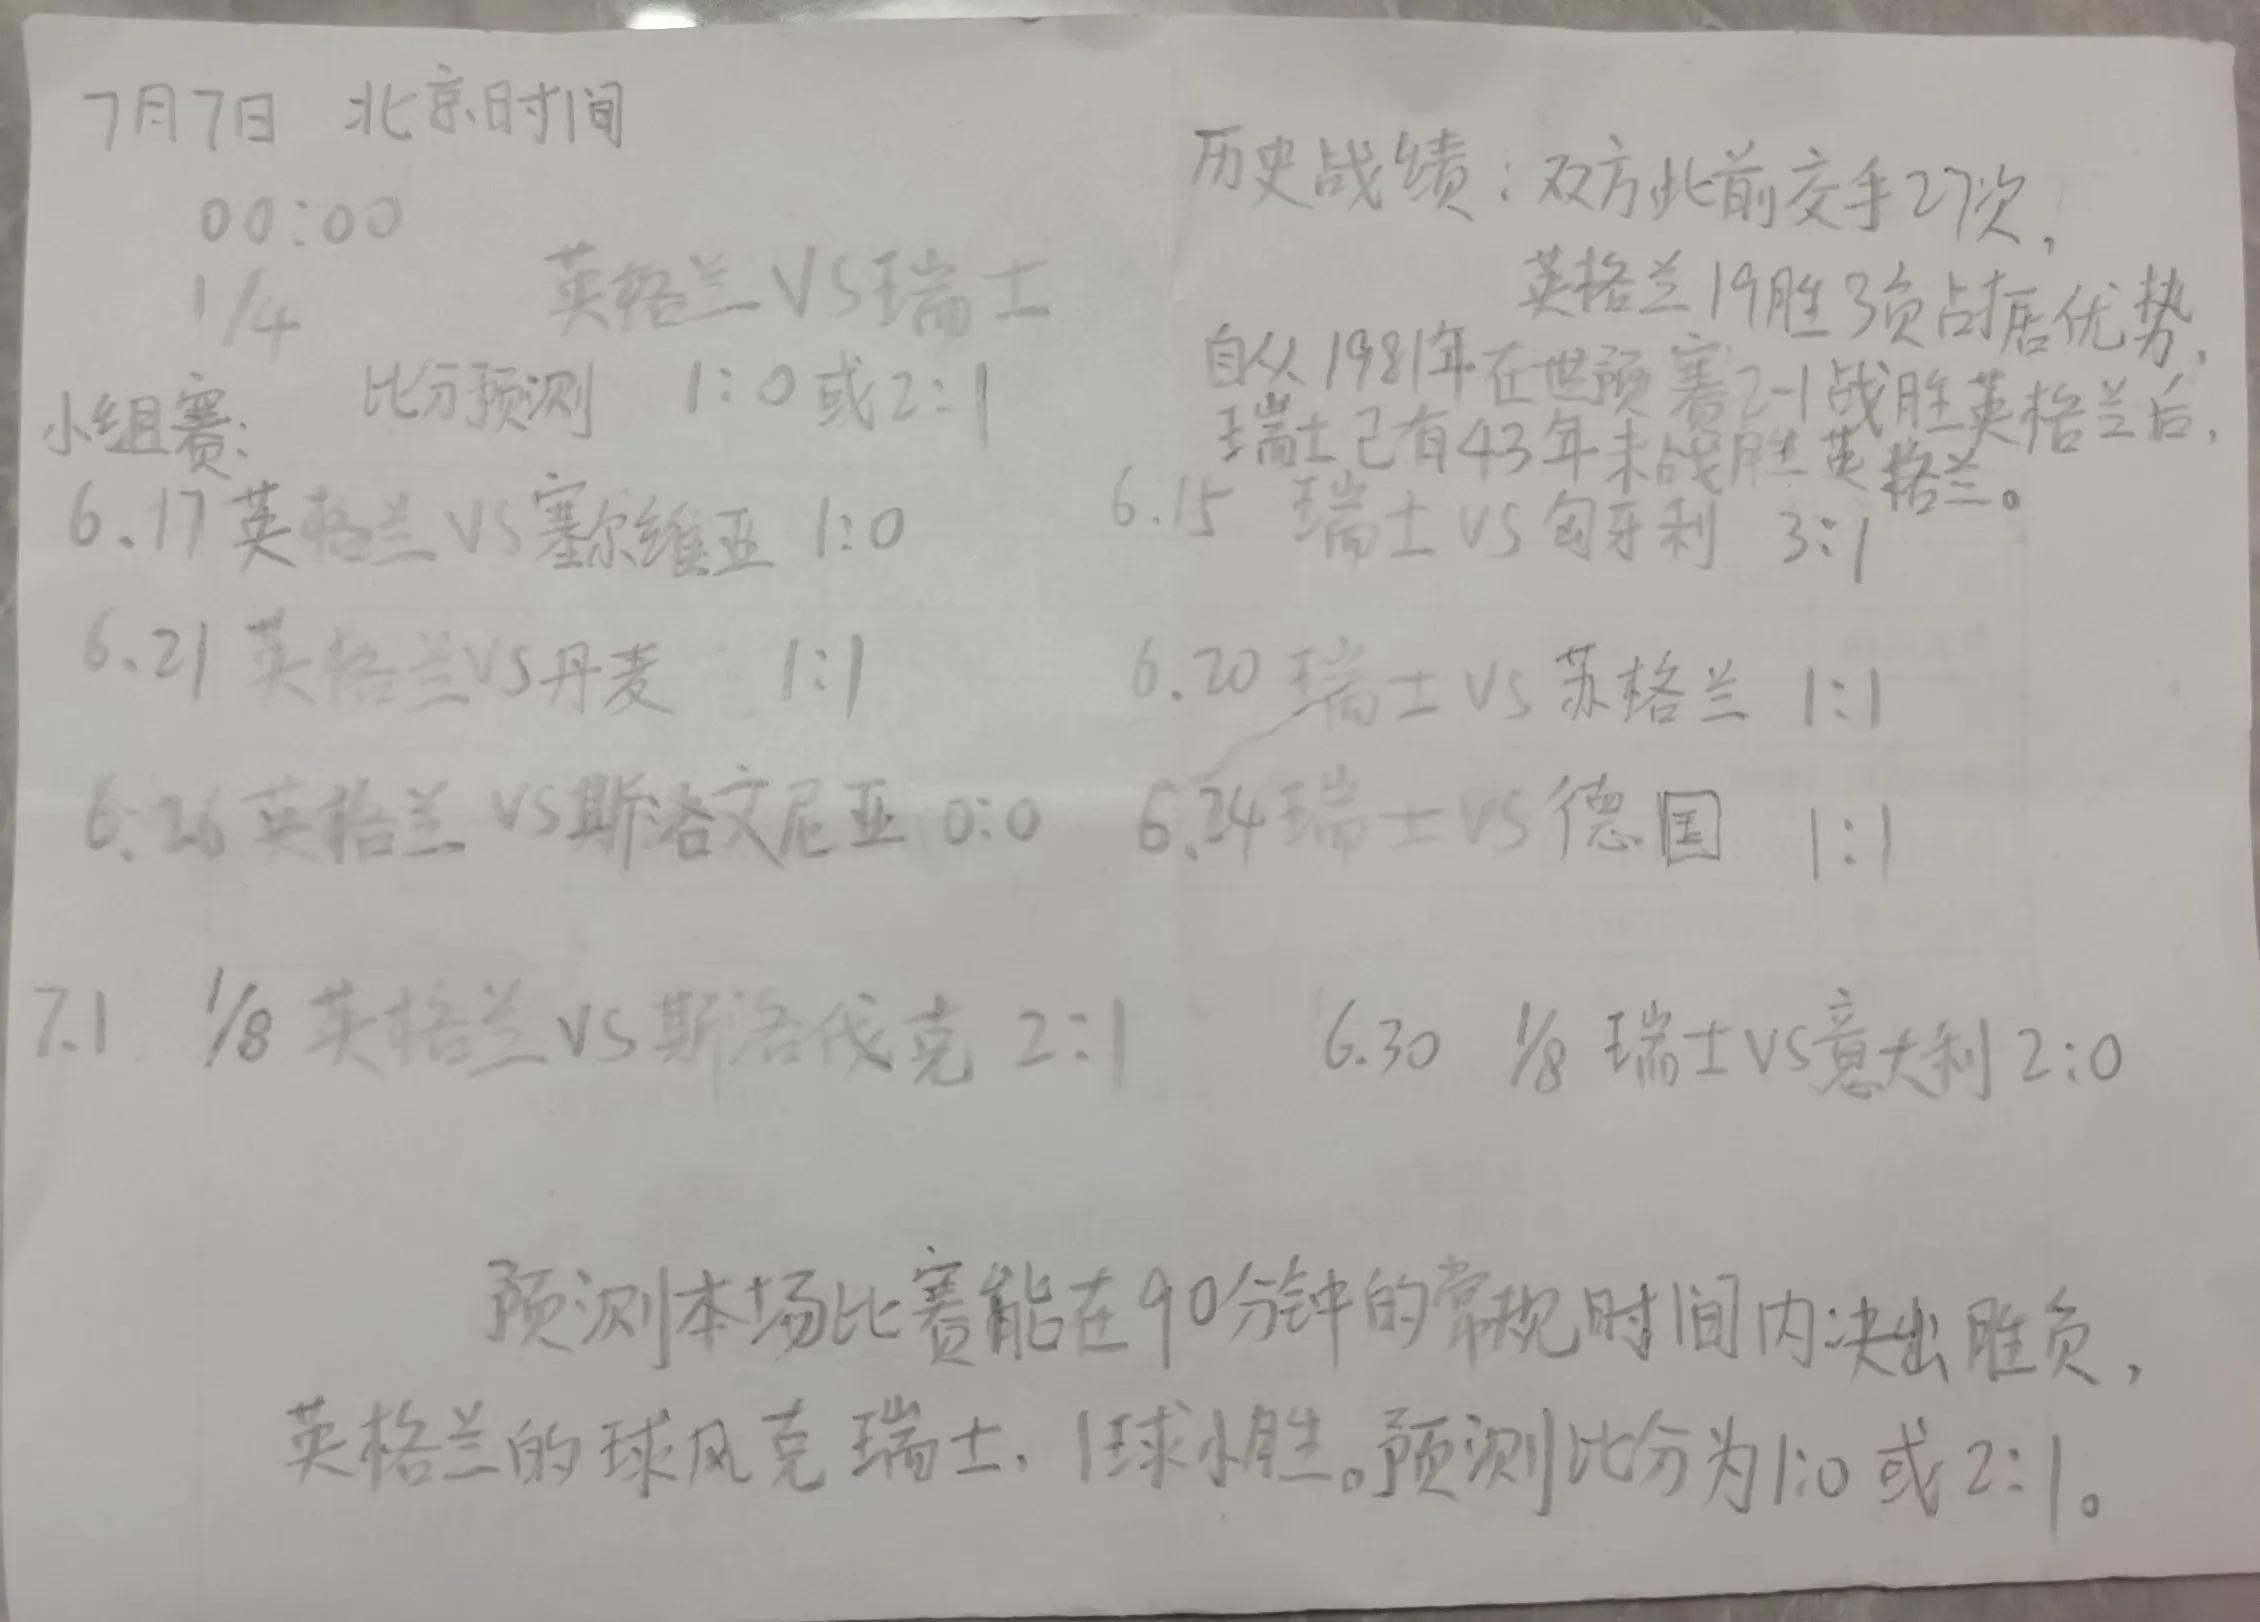 7月7日 北京时间
00:00
1/4 英格兰VS瑞士
比分预测 1:0或2:1
历史战绩：双方此前交手27次，
英格兰19胜3负占据优势，
自从1981年在世预赛2-1战胜英格兰后，
瑞士已有43年未战胜英格兰。
小组赛：
6.17 英格兰VS塞尔维亚 1:0
6.15 瑞士VS匈牙利 3:1
6.21 英格兰VS丹麦 1:1
6.20 瑞士VS苏格兰 1:1
6.26 英格兰VS斯洛文尼亚 0:0
6.24 瑞士VS德国 1:1
7.1 1/8 英格兰VS斯洛伐克 2:1
6.30 1/8 瑞士VS意大利 2:0
预测本场比赛能在90分钟的常规时间内决出胜负，
英格兰的球风克瑞士，1球小胜。预测比分为1:0或2:1。